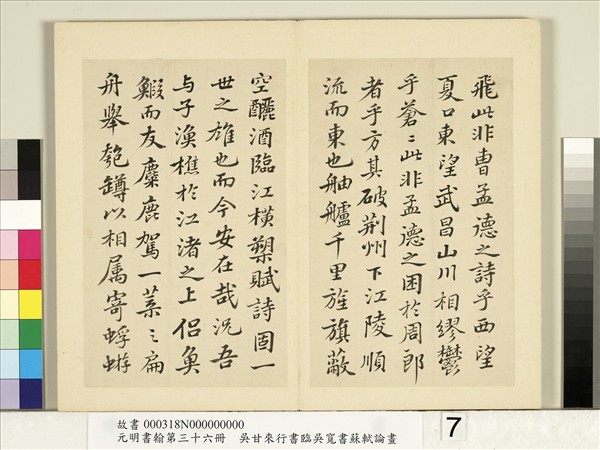 飛此非曹孟德之詩乎西望
夏口東望武昌山川相繆鬱
乎蒼〻此非孟德之困於周郎
者乎方其破荆州下江陵順
流而東也舳艫千里旌旗蔽
空釃酒臨江橫槊賦詩固一
世之雄也而今安在哉況吾
与子漁樵於江渚之上侶魚
鰕而友麋鹿駕一葉之扁
舟舉匏罇以相属寄蜉蝣
故書 000318N000000000
元明書翰第三十六冊 吳甘來行書臨吳寬書蘇軾論畫
7